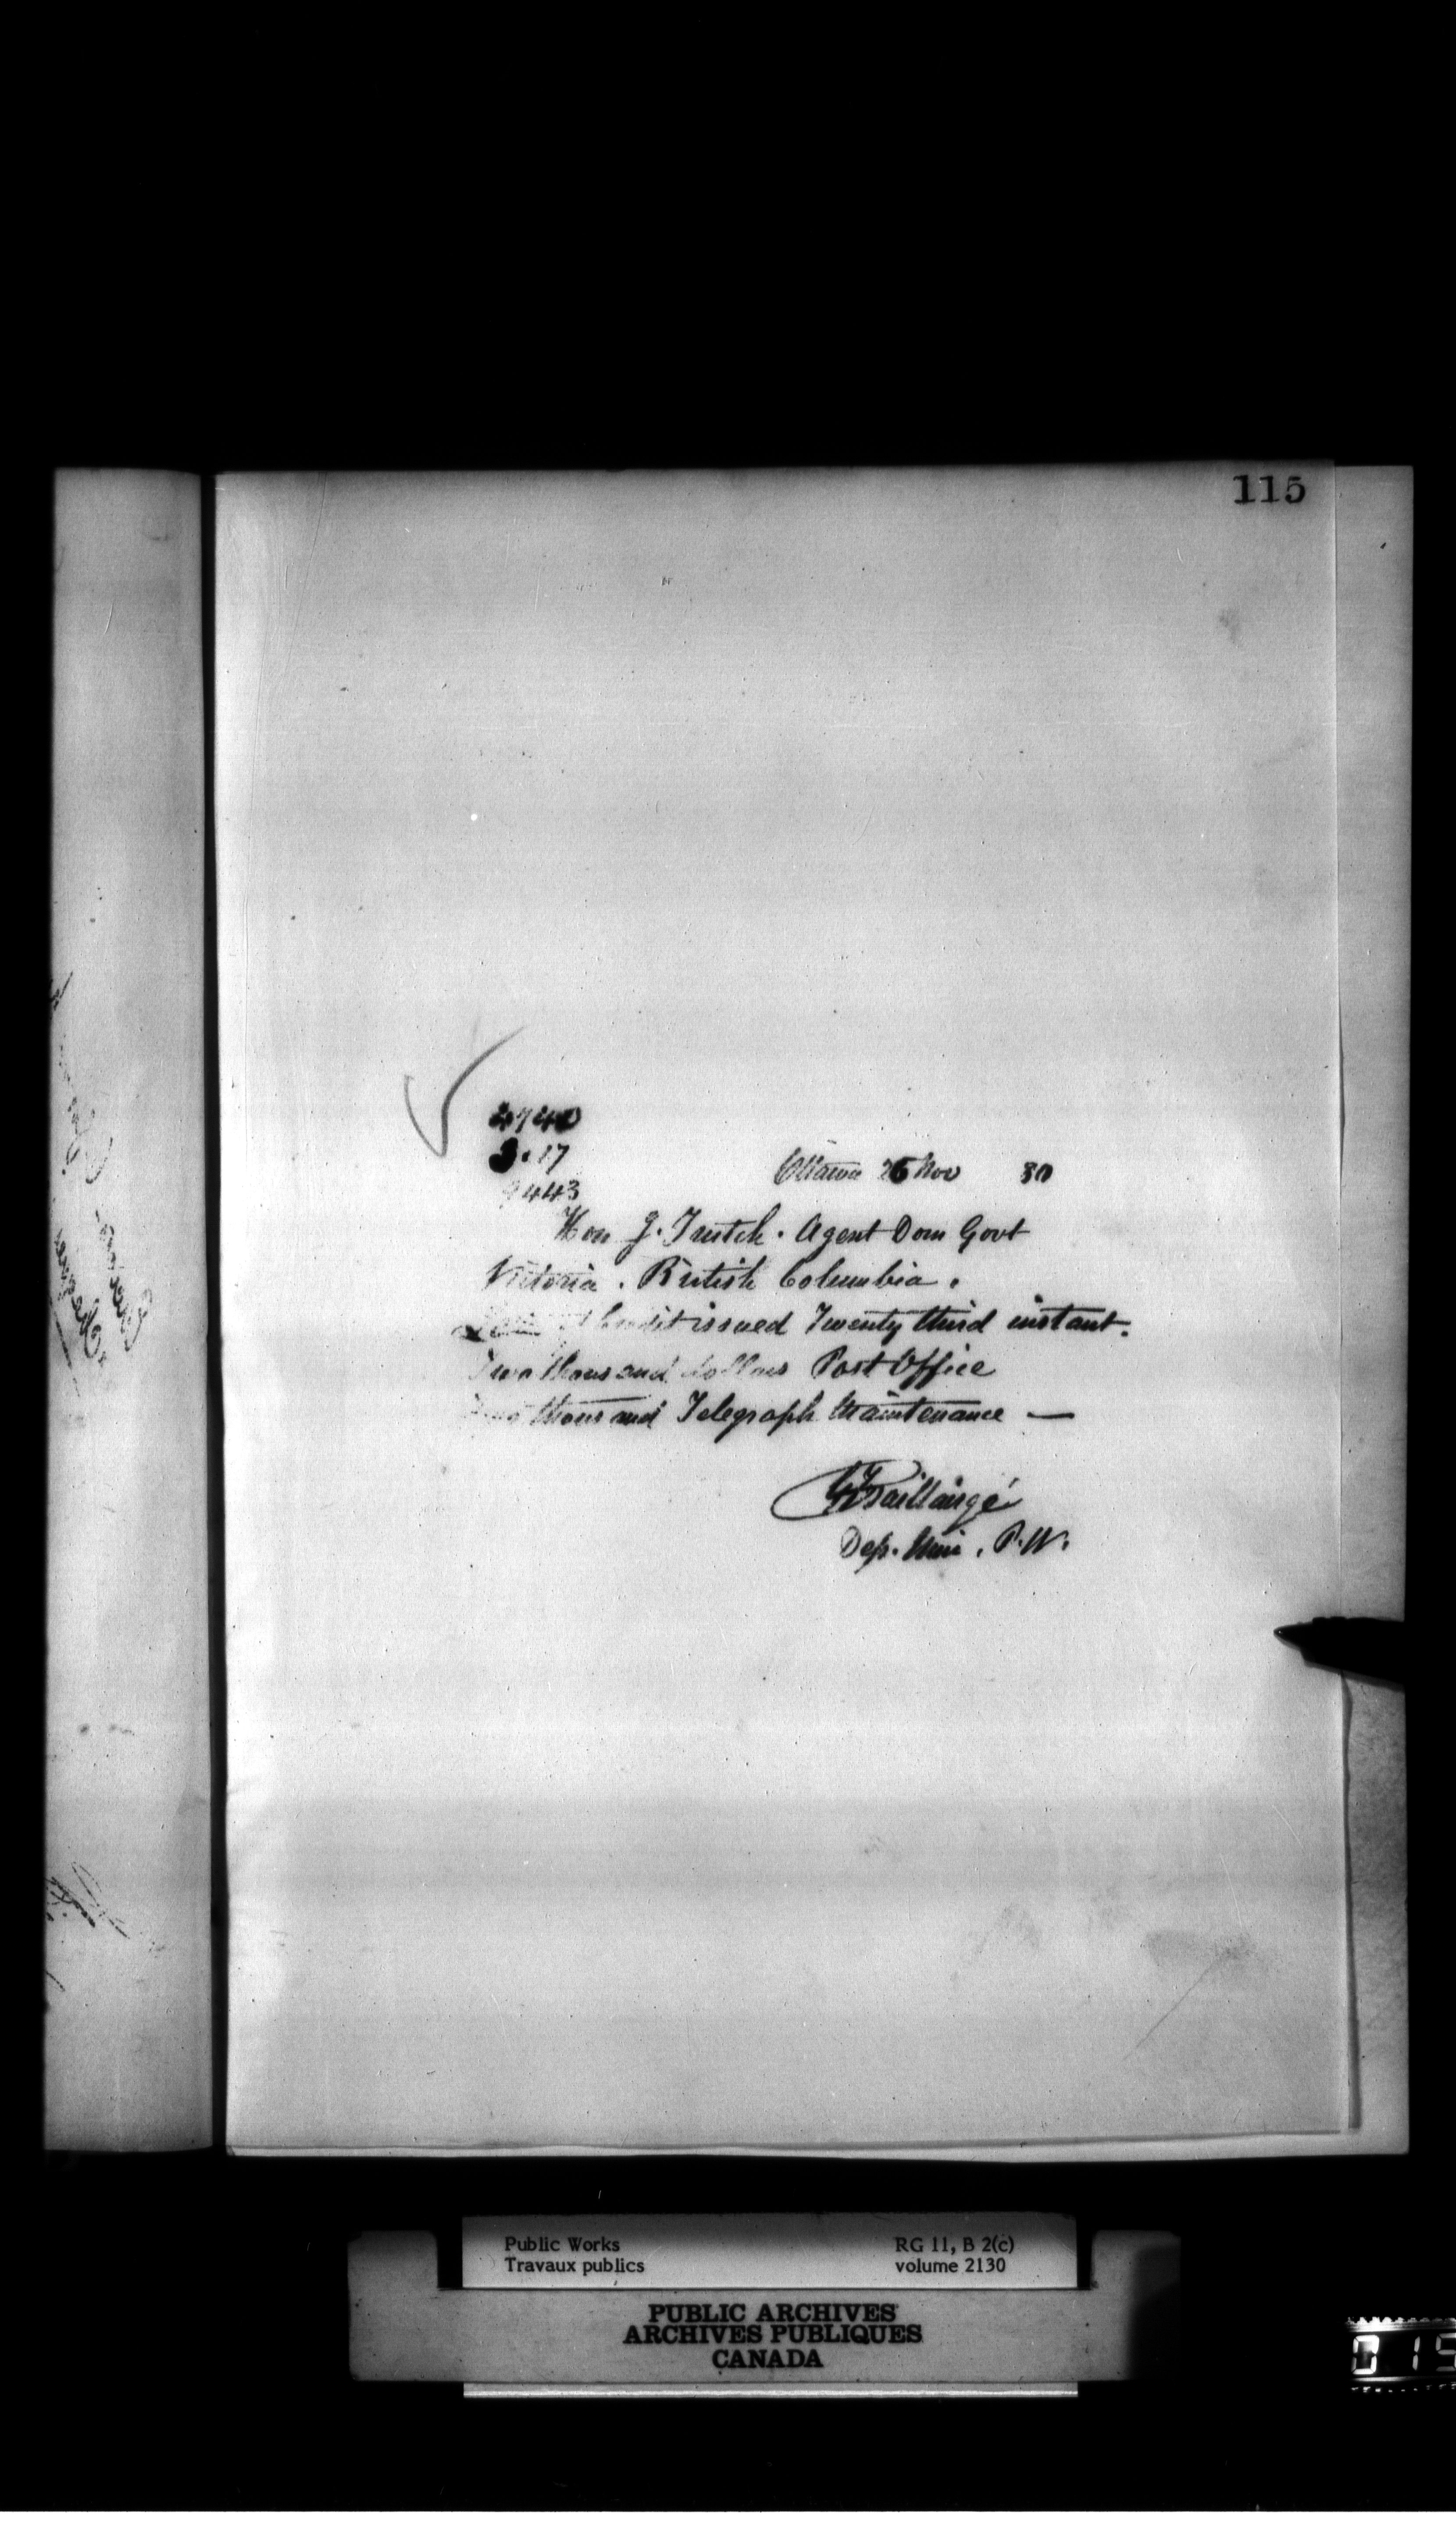 115
474
3.17
9443
Ottawa 26 Nov 80
Hon J. Trutch. Agent Dom Govt
Victoria. British Columbia.
of Credit issued Twenty third instant.
Two thousand dollars Post Office
Two thousand Telegraph Maintenance —
G F Baillairgé
Dep. Min. P.W.
Public Works
Travaux publics
RG 11, B 2(c)
volume 2130
PUBLIC ARCHIVES
ARCHIVES PUBLIQUES
CANADA